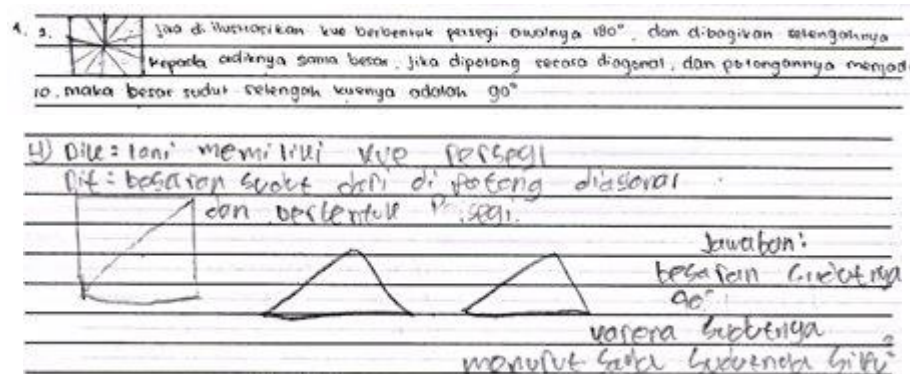 4. 3. jika di ilustrasikan kue berbentuk persegi awalnya 180°, dan dibagikan setengahnya
kepada adiknya sama besar. Jika dipotong secara diagonal, dan potongannya menjadi
10. maka besar sudut setengah kuenya adalah 90°
4) Dik = memiliki kue persegi
Dit = besaran sudut dari di potong diagonal
dan berbentuk
Jawaban:
besaran sudutnya
90°
karena sudutnya
menurut saya sudutnya siku"